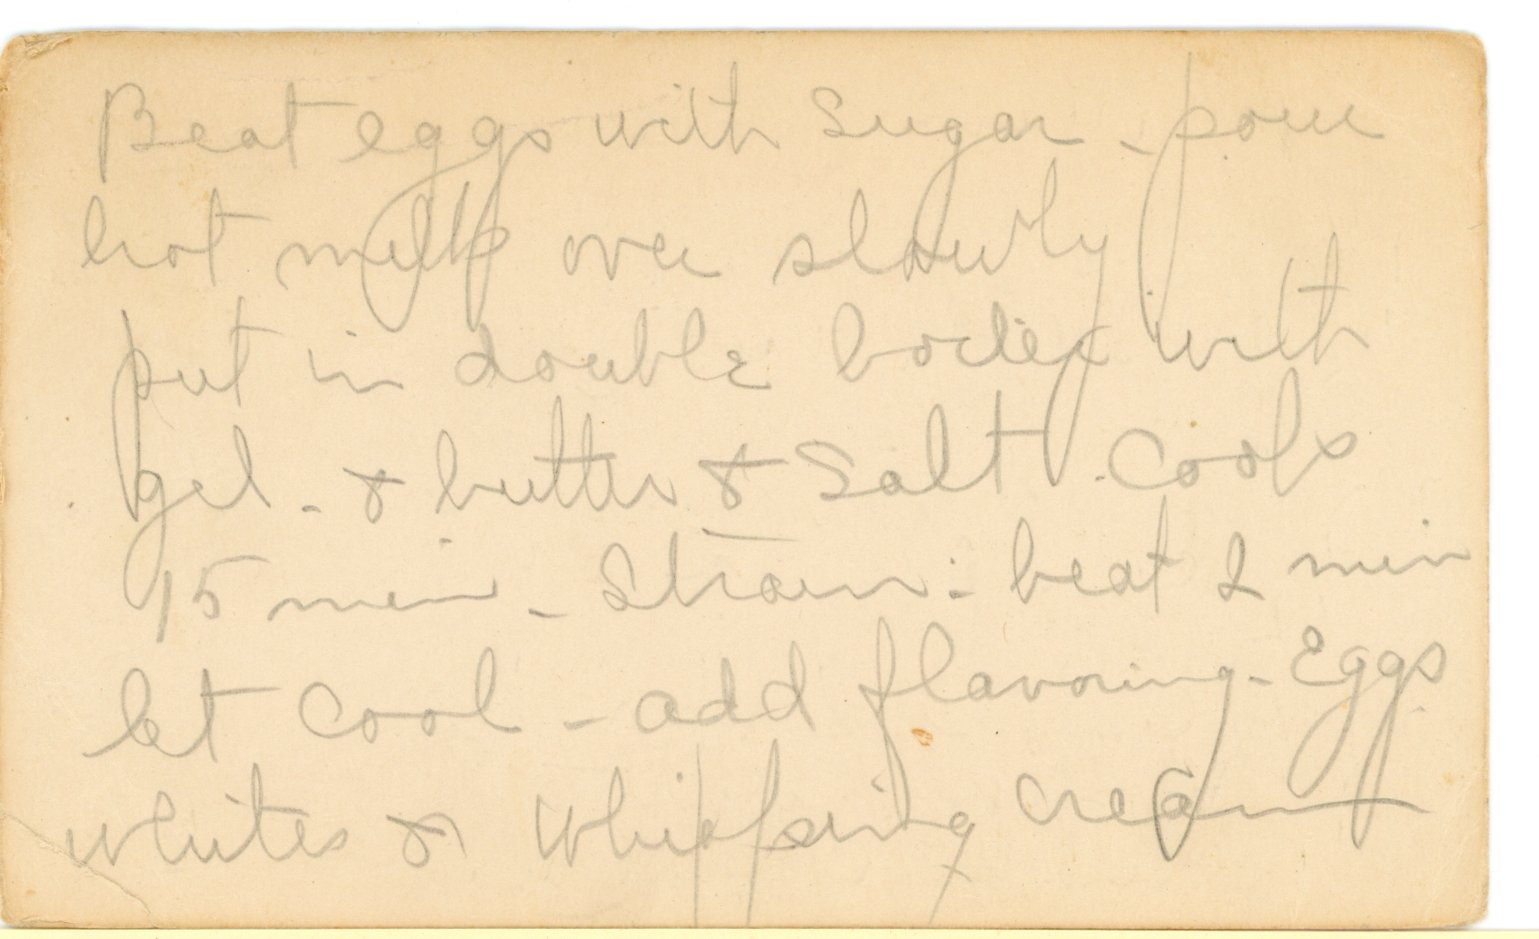 Beat eggs with Sugar - pour
hot milk over slowly
put in double boiler with
gel. & butter & Salt. Cook
15 min - Strain - beat 2 min
let Cool - add flavouring - Eggs
whites & Whipping Cream